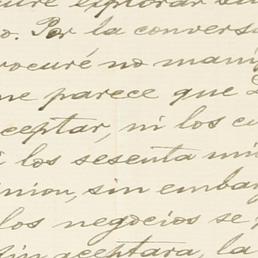 explorar
o. Por la convers
rocuré no mani
me parece que
ceptar, ni los cu
i los sesenta mi
inion, sin embar
los negocios se
sin aceptara, la